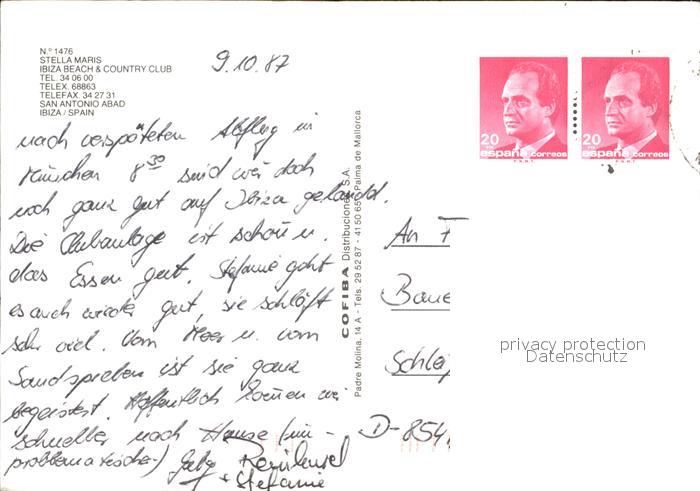 N.º 1476
STELLA MARIS
IBIZA BEACH & COUNTRY CLUB
TEL. 34 06 00
TELEX. 68863
TELEFAX. 34 27 31
SAN ANTONIO ABAD
IBIZA / SPAIN
9.10.87
nach verspäteten Abflug in
München 8³⁰ sind wir doch
noch ganz gut auf Ibiza gelandet.
Die Clubanlage ist schön u.
das Essen gut. Stefanie geht
es auch wieder gut, sie schläft
sehr viel. Vom Meer u. vom
Sandspielen ist sie ganz
begeistert. Hoffentlich kommen wir
schneller nach Hause (un-
problematischer)
+ Stefanie
COFIBA Distribuciones, S.A.
Padre Molina, 14 A - Tels. 29 52 87 - 41 50 65 - Palma de Mallorca
20
españa correos
20
españa correos
An F
Baue
Schleif
D-854
privacy protection
Datenschutz